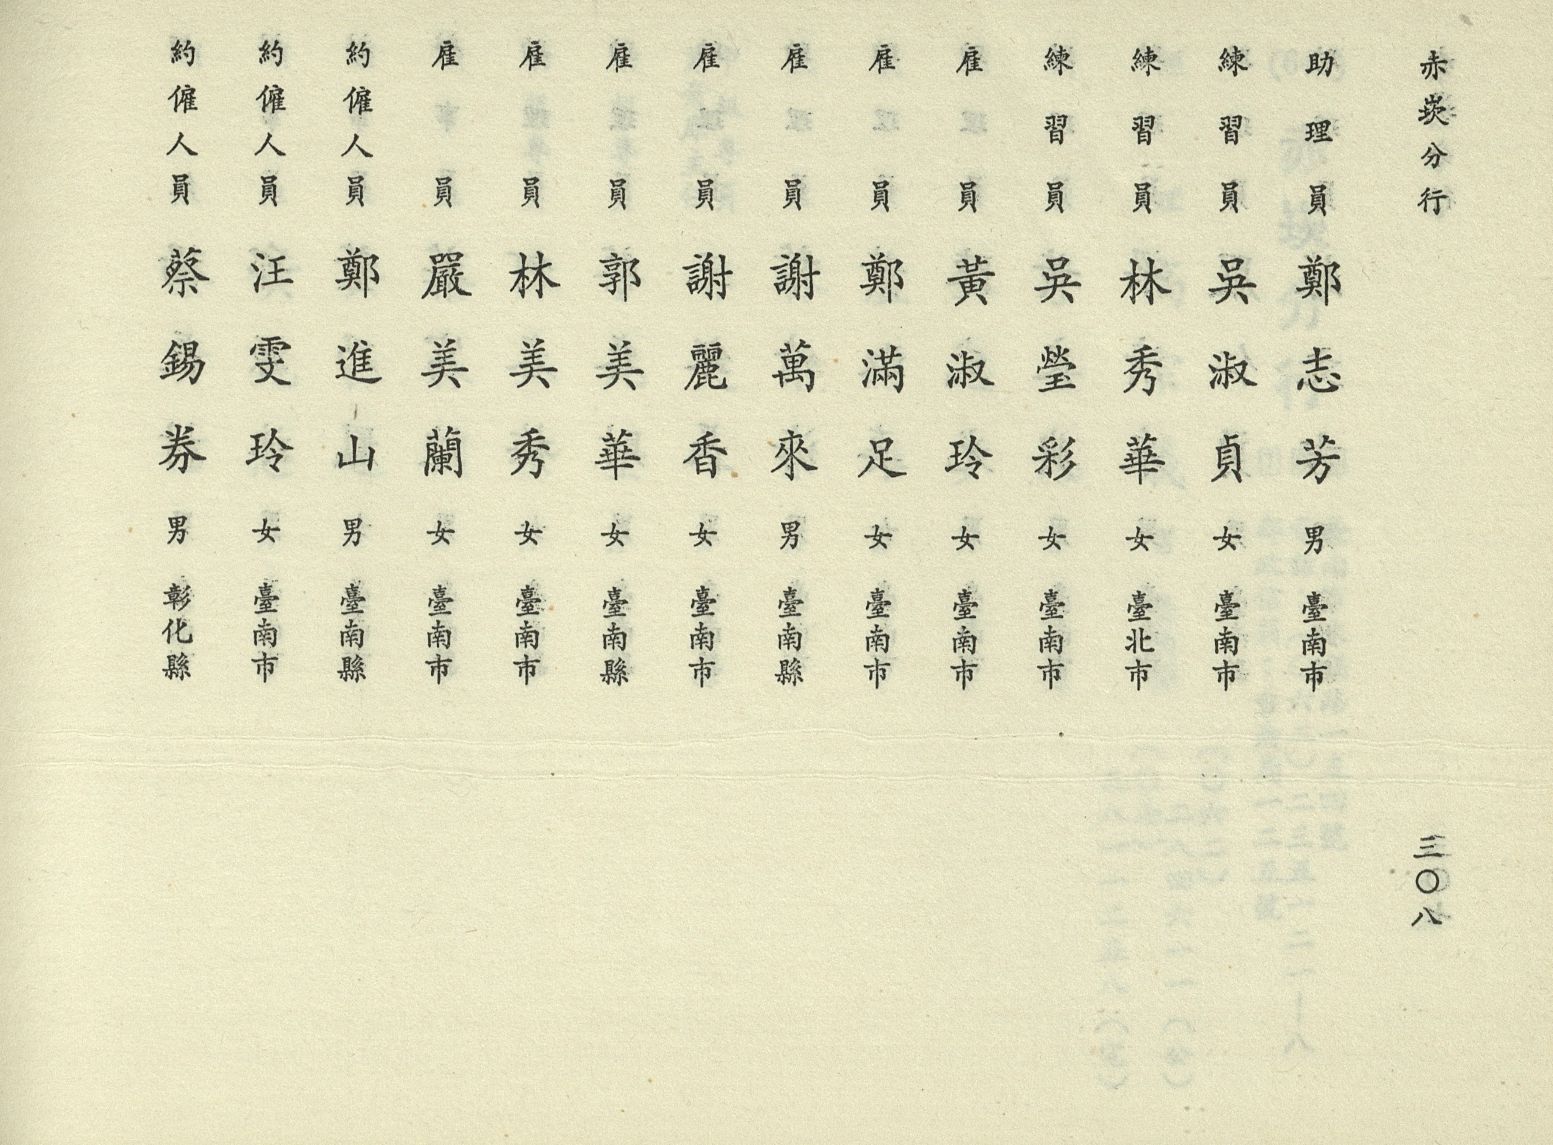 赤崁分行
三〇八
助理員 鄭志芳 男 臺南市
練習員 吳淑貞 女 臺南市
練習員 林秀華 女 臺北市
練習員 吳瑩彩 女 臺南市
雇員 黃淑玲 女 臺南市
雇員 鄭滿足 女 臺南市
雇員 謝萬來 男 臺南縣
雇員 謝麗香 女 臺南市
雇員 郭美華 女 臺南縣
雇員 林美秀 女 臺南市
雇員 嚴美蘭 女 臺南市
約僱人員 鄭進山 男 臺南縣
約僱人員 汪雯玲 女 臺南市
約僱人員 蔡錫券 男 彰化縣